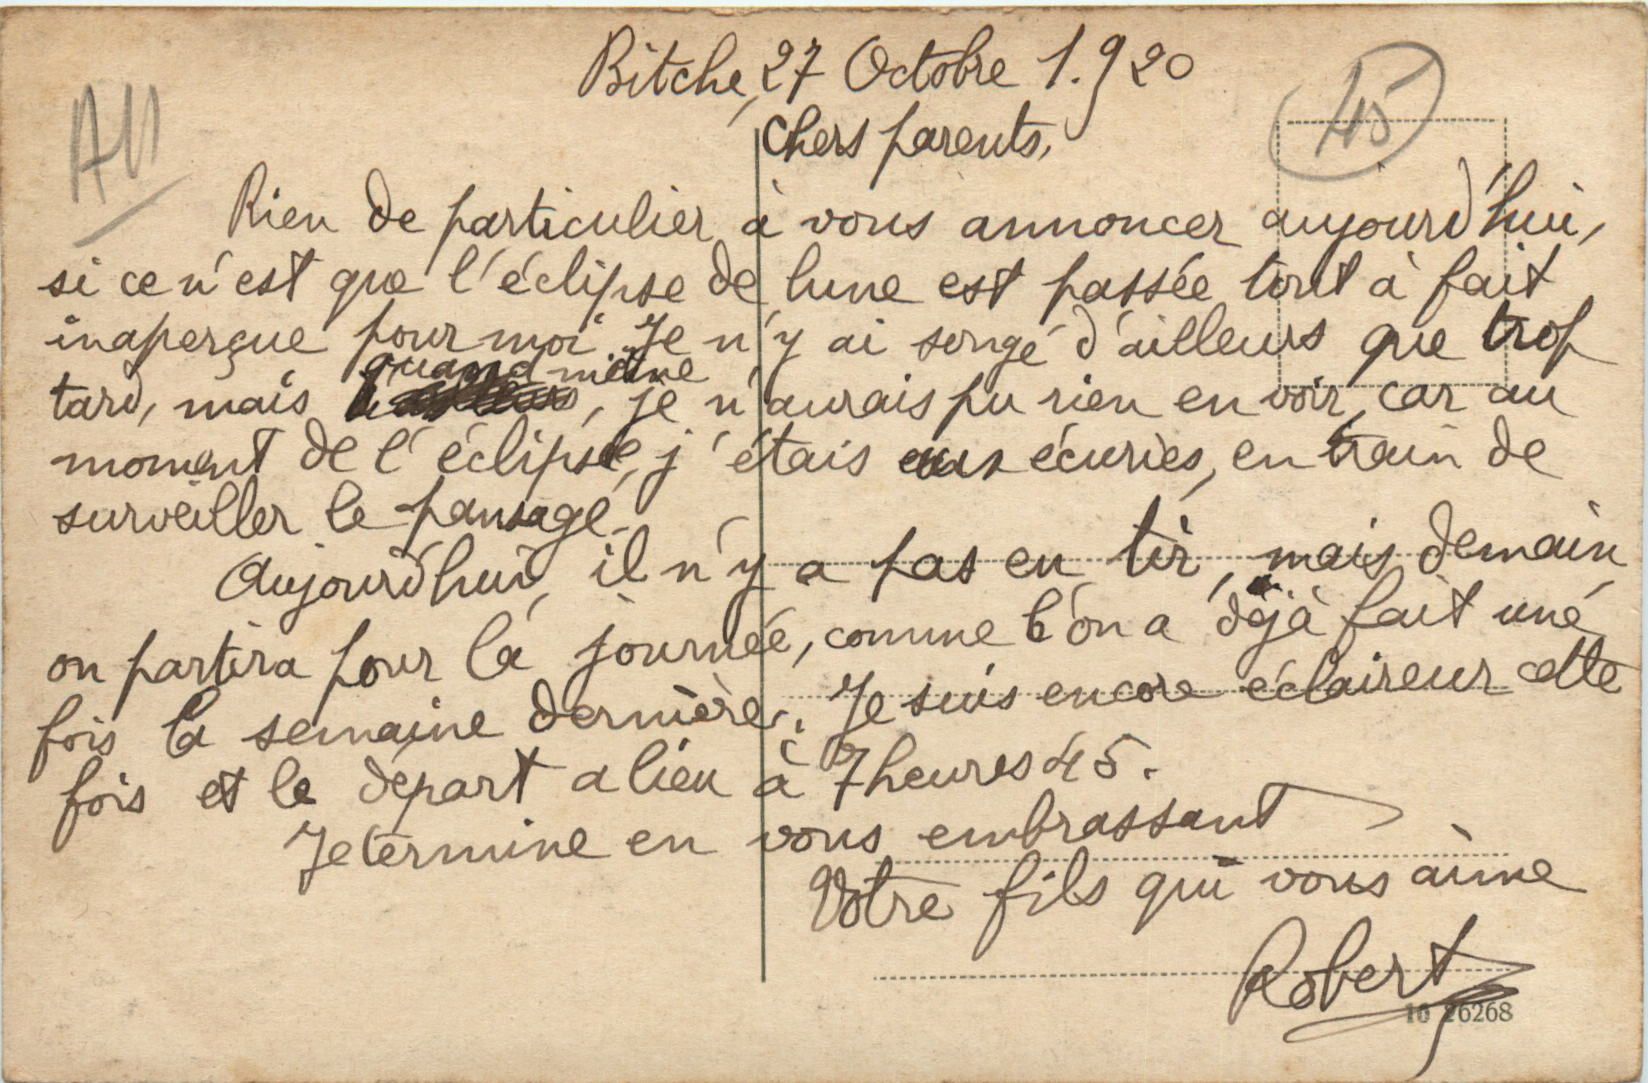 Bitche, 27 Octobre 1.920
45
Chers parents,
Rien de particulier à vous annoncer aujourd'hui,
si ce n'est que l'éclipse de lune est passée tout à fait
inaperçue pour moi. Je n'y ai songé d'ailleurs que trop
tard, mais quand même, je n'aurais pu rien en voir, car au
moment de l'éclipse, j'étais aux écuries, en train de
surveiller le pansage.
Aujourd'hui, il n'y a pas eu tir, mais demain
on partira pour la journée, comme l'on a déjà fait une
fois la semaine dernière. Je suis encore éclaireur cette
fois et le départ a lieu à 7 heures 45.
Je termine en vous embrassant
Votre fils qui vous aime
Robert
10 26268